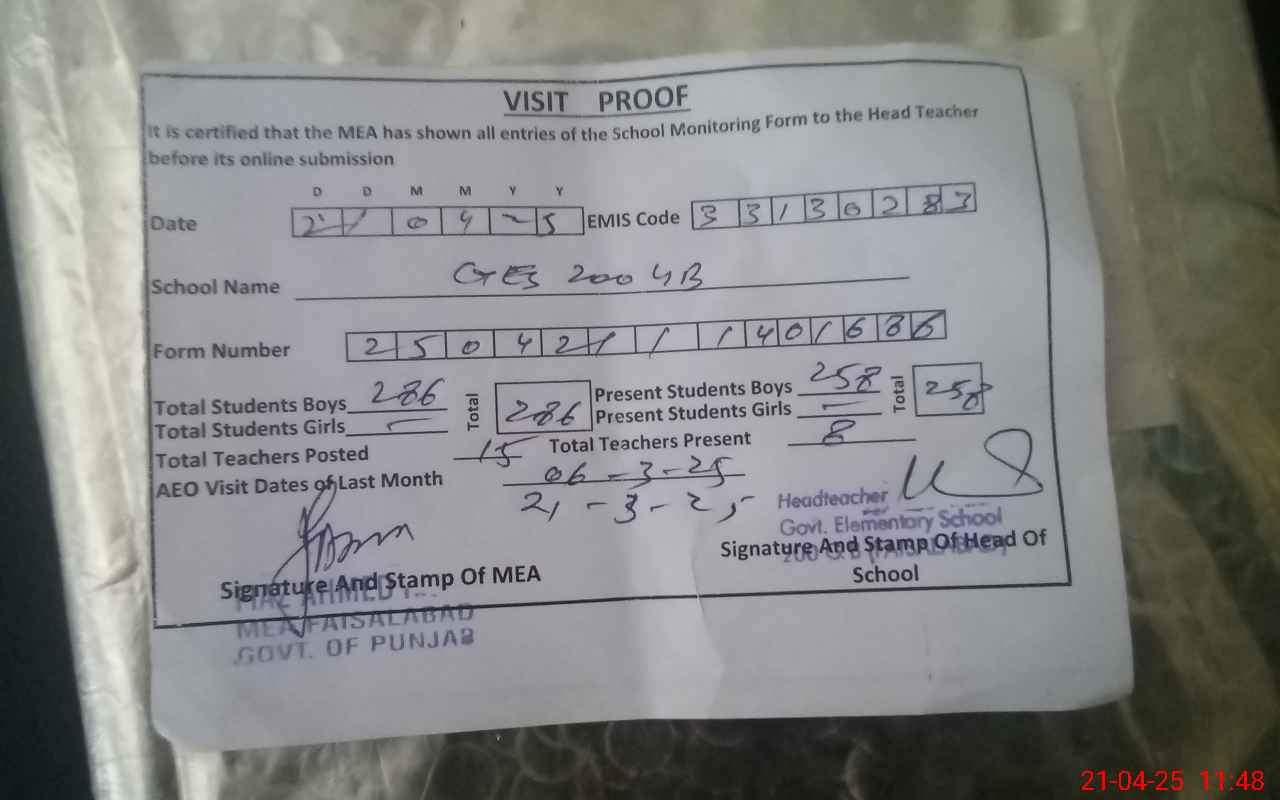 VISIT PROOF
It is certified that the MEA has shown all entries of the School Monitoring Form to the Head Teacher
before its online submission
D D M M Y Y
Date 2 1 0 4 2 5 EMIS Code 3 3 1 3 0 2 8 3
School Name GES 200 GB
Form Number 2 5 0 4 2 1 1 1 4 0 1 6 8 6
Total Students Boys 286 Total 286 Present Students Boys 258 Total 258
Total Students Girls — Present Students Girls —
Total Teachers Posted 15 Total Teachers Present 8
AEO Visit Dates of Last Month 06-3-25
21-3-25
Headteacher
Govt. Elementary School
Signature And Stamp Of Head Of
School
Signature And Stamp Of MEA
AHMED
MEA FAISALABAD
GOVT. OF PUNJAB
21-04-25 11:48